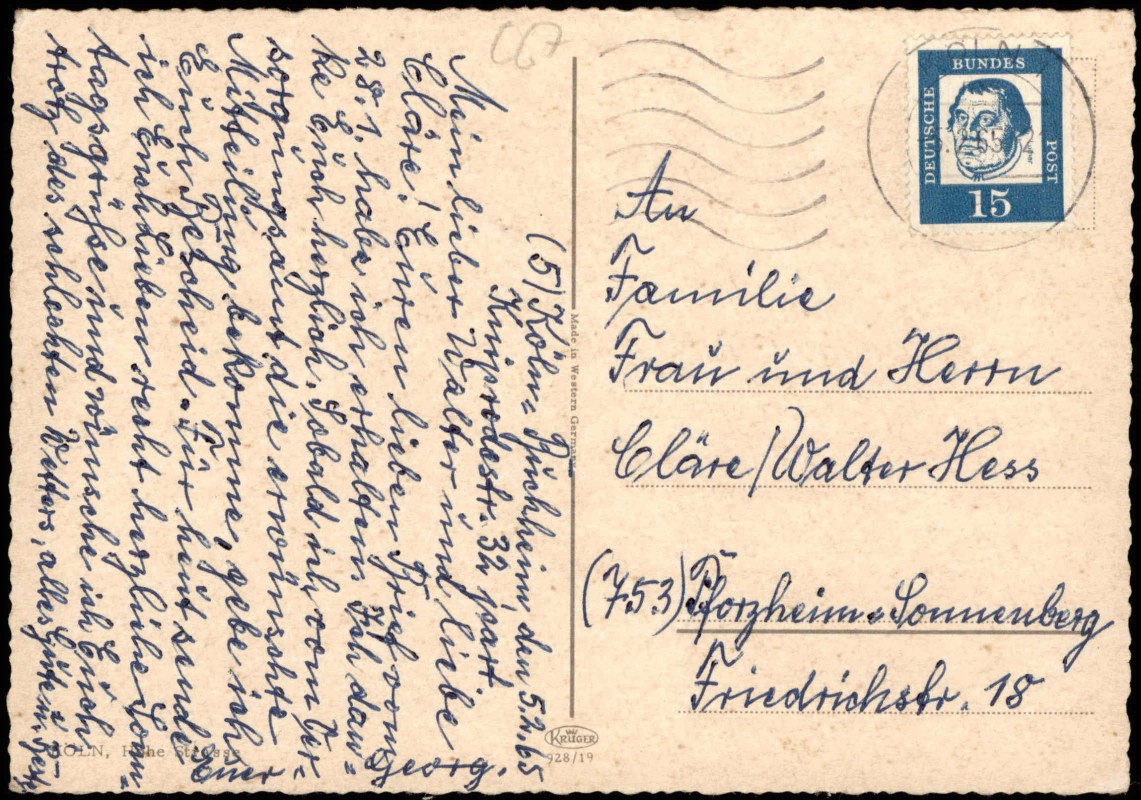 (5) Köln-Buchheim, den 5.2.65
Kniprodestr. 32 part
Mein lieber Walter und liebe
Cläre! Euren lieben Brief vom
28.1. habe ich erhalten. Ich dan=
ke Euch herzlich. Sobald ich vom Ver=
sorgungsamt die erwünschte
Mitteilung bekomme, gebe ich
Euch Bescheid. Für heut sende
ich Euch Lieben recht herzliche Sonn=
tagsgrüße und wünsche ich Euch
trotz des schlechten Wetters, alles Gute u. Beste
Euer
Georg.
KÖLN, Hohe Strasse
Made in Western Germany
KRÜGER
928/19
DEUTSCHE
BUNDES
POST
15
KÖLN
.2.65
An
Familie
Frau und Herrn
Cläre/Walter Hess
(753) Pforzheim-Sonnenberg
Friedrichstr. 18